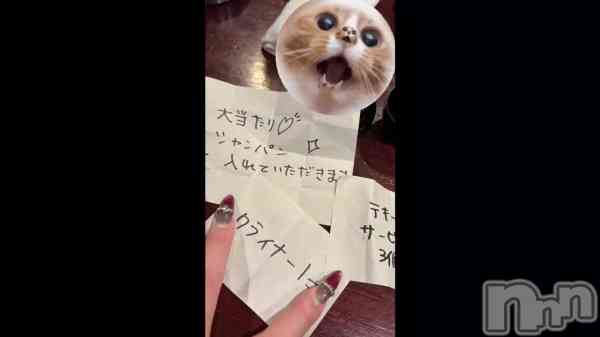 大当たり♡
シャンパン
入れていただきます
テキ
サービ
3個
クライナー1
nnn